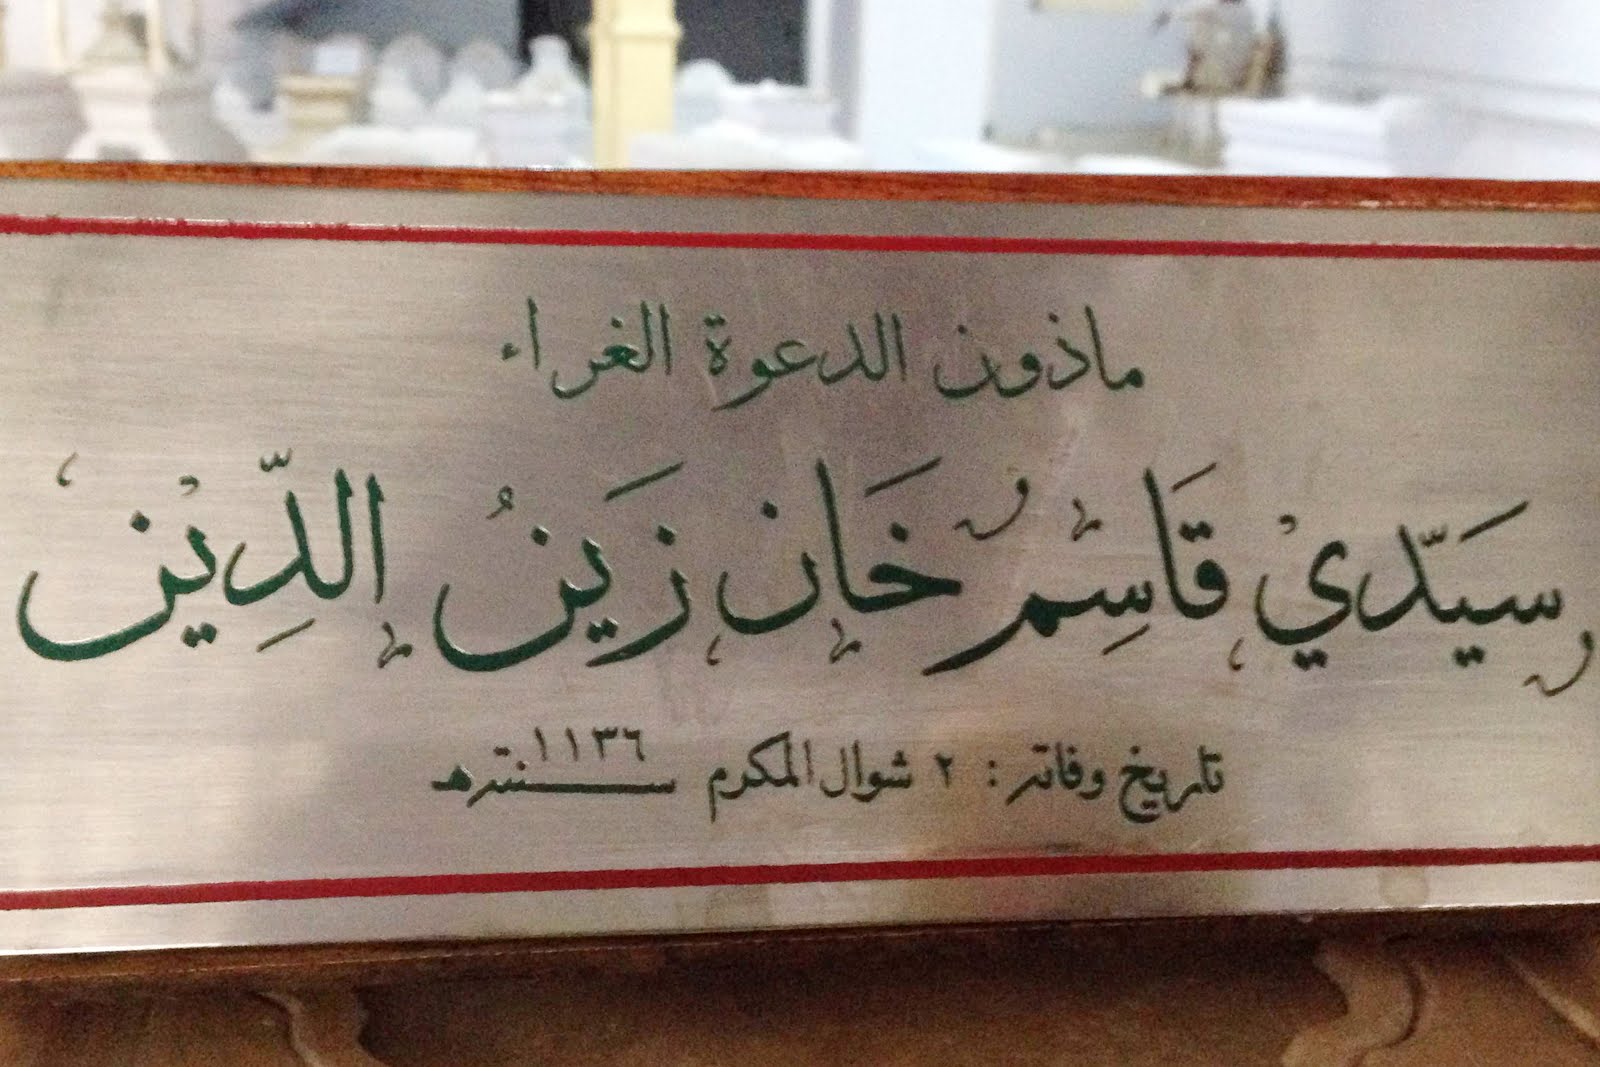 ماذون الدعوة الغراء
سَيِّدِيْ قَاسِمْ خَانْ زَيْنُ الدِّيْن
تاريخ وفاته : ٢ شوال المكرم سنة ١١٣٦ھ